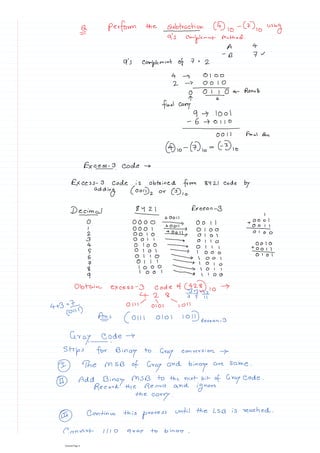 Q Perform the subtraction (4)10 - (7)10 using
9's complement method
A 4
- B 7 ✓
9's complement of 7 = 2
4 → 0100
2 → 0010
0 0110 ← Result
final carry
9 → 1001
- 6 → 0110
0011 Final Ans
(4)10 - (7)10 = (-3)10
Excess-3 code →
Excess-3 code is obtained from 8421 code by
adding (0011)2 or (3)10
Decimal 8421 Excess-3
0 0000 → 0011
1 0001 → 0100
2 0010 → 0101
3 0011 → 0110
4 0100 → 0111
5 0101 → 1000
6 0110 → 1001
7 0111 → 1010
8 1000 → 1011
9 1001 → 1100
0001
+0011
0100
0010
+0011
0101
Obtain excess-3 code of (428)10 →
4 2 8
4+3=7
(0111)
0111 0101 1011
Ans (0111 0101 1011) Excess-3
Gray code →
Steps for Binary to Gray conversion →
I The MSB of Gray and binary are same.
II Add Binary MSB to the next bit of Gray code.
Record the Result and ignore
the carry
III Continue this process until the LSB is reached.
Convert 1110 gray to binary.